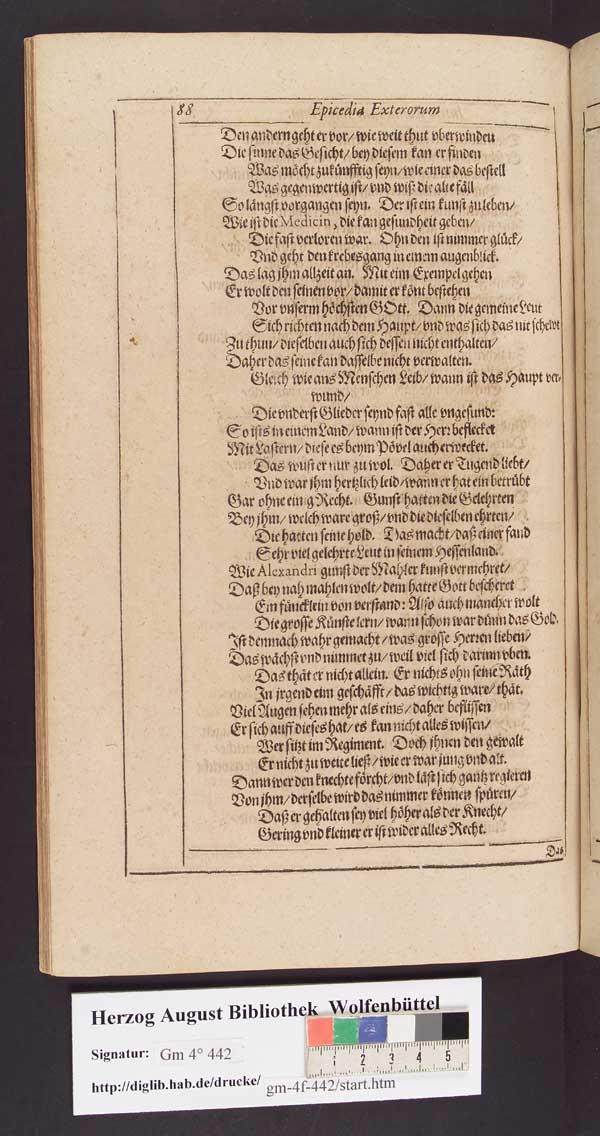 88 Epicedia Exterorum
Den andern geht er vor/ wie weit thut vberwinden
Die sinne das Gesicht/ bey diesem kan er finden
Was möcht zukünfftig seyn/ wie einer das bestell
Was gegenwertig ist/ vnd wiß die alte fäll
So längst vorgangen seyn. Der ist ein kunst zuleben/
Wie ist die Medicin, die kan gesundheit geben/
Die fast verloren war. Ohn den ist nimmer glück/
Vnd geht den krebesgang in einem augenblick.
Das lag jhm allzeit an. Mit eim Exempel gehen
Er wolt den seinen vor/ damit er könt bestehen
Vor vnserm höchsten GOtt. Dann die gemeine Leut
Sich richten nach dem Haupt/ vnd was sich das nit schewt
Zu thun/ dieselben auch sich dessen nicht enthalten/
Daher das seine kan dasselbe nicht verwalten.
Gleich wie ans Menschen Leib/ wann ist das Haupt ver-
wund/
Die vnderst Glieder seynd fast alle vngesund:
So ists in einem Land/ wann ist der Herr beflecket
Mit Lastern/ diese es beym Pövel auch erwecket.
Das wust er nur zu wol. Daher er Tugend liebt/
Vnd war jhm hertzlich leid/ wann er hat ein betrübt
Gar ohne einig Recht. Gunst hatten die Gelehrten
Bey jhm/ welch ware groß/ vnd die dieselben ehrten/
Die hatten seine hold. Das macht/ daß einer fand
Sehr viel gelehrte Leut in seinem Hessenland.
Wie Alexandri gunst der Mahler kunst vermehret/
Daß bey nah mahlen wolt/ dem hatte Gott bescheret
Ein füncklein von verstand: Also auch mancher wolt
Die grosse Künste lern/ wann schon war dünn das Gold.
Ist dennach wahr gemacht/ was grosse Herren lieben/
Das wächst vnd nimnet zu/ weil viel sich darinn vben.
Das thät er nicht allein. Er nichts ohn seine Räth
In jrgend eim geschäfft/ das wichtig ware/ thät.
Viel Augen sehen mehr als eins/ daher beflissen
Er sich auff dieses hat/ es kan nicht alles wissen/
Wer sitzt im Regiment. Doch jhnen den gewalt
Er nicht zu weite ließ/ wie er war jung vnd alt.
Dann wer den knechte förcht/ vnd läst sich gantz regieren
Von jhm/ derselbe wird das nimmer können spüren/
Daß er gehalten sey viel höher als der Knecht/
Gering vnd kleiner er ist wider alles Recht.
Das
Herzog August Bibliothek Wolfenbüttel
Signatur: Gm 4° 442
http://diglib.hab.de/drucke/ gm-4f-442/start.htm
1 2 3 4 5